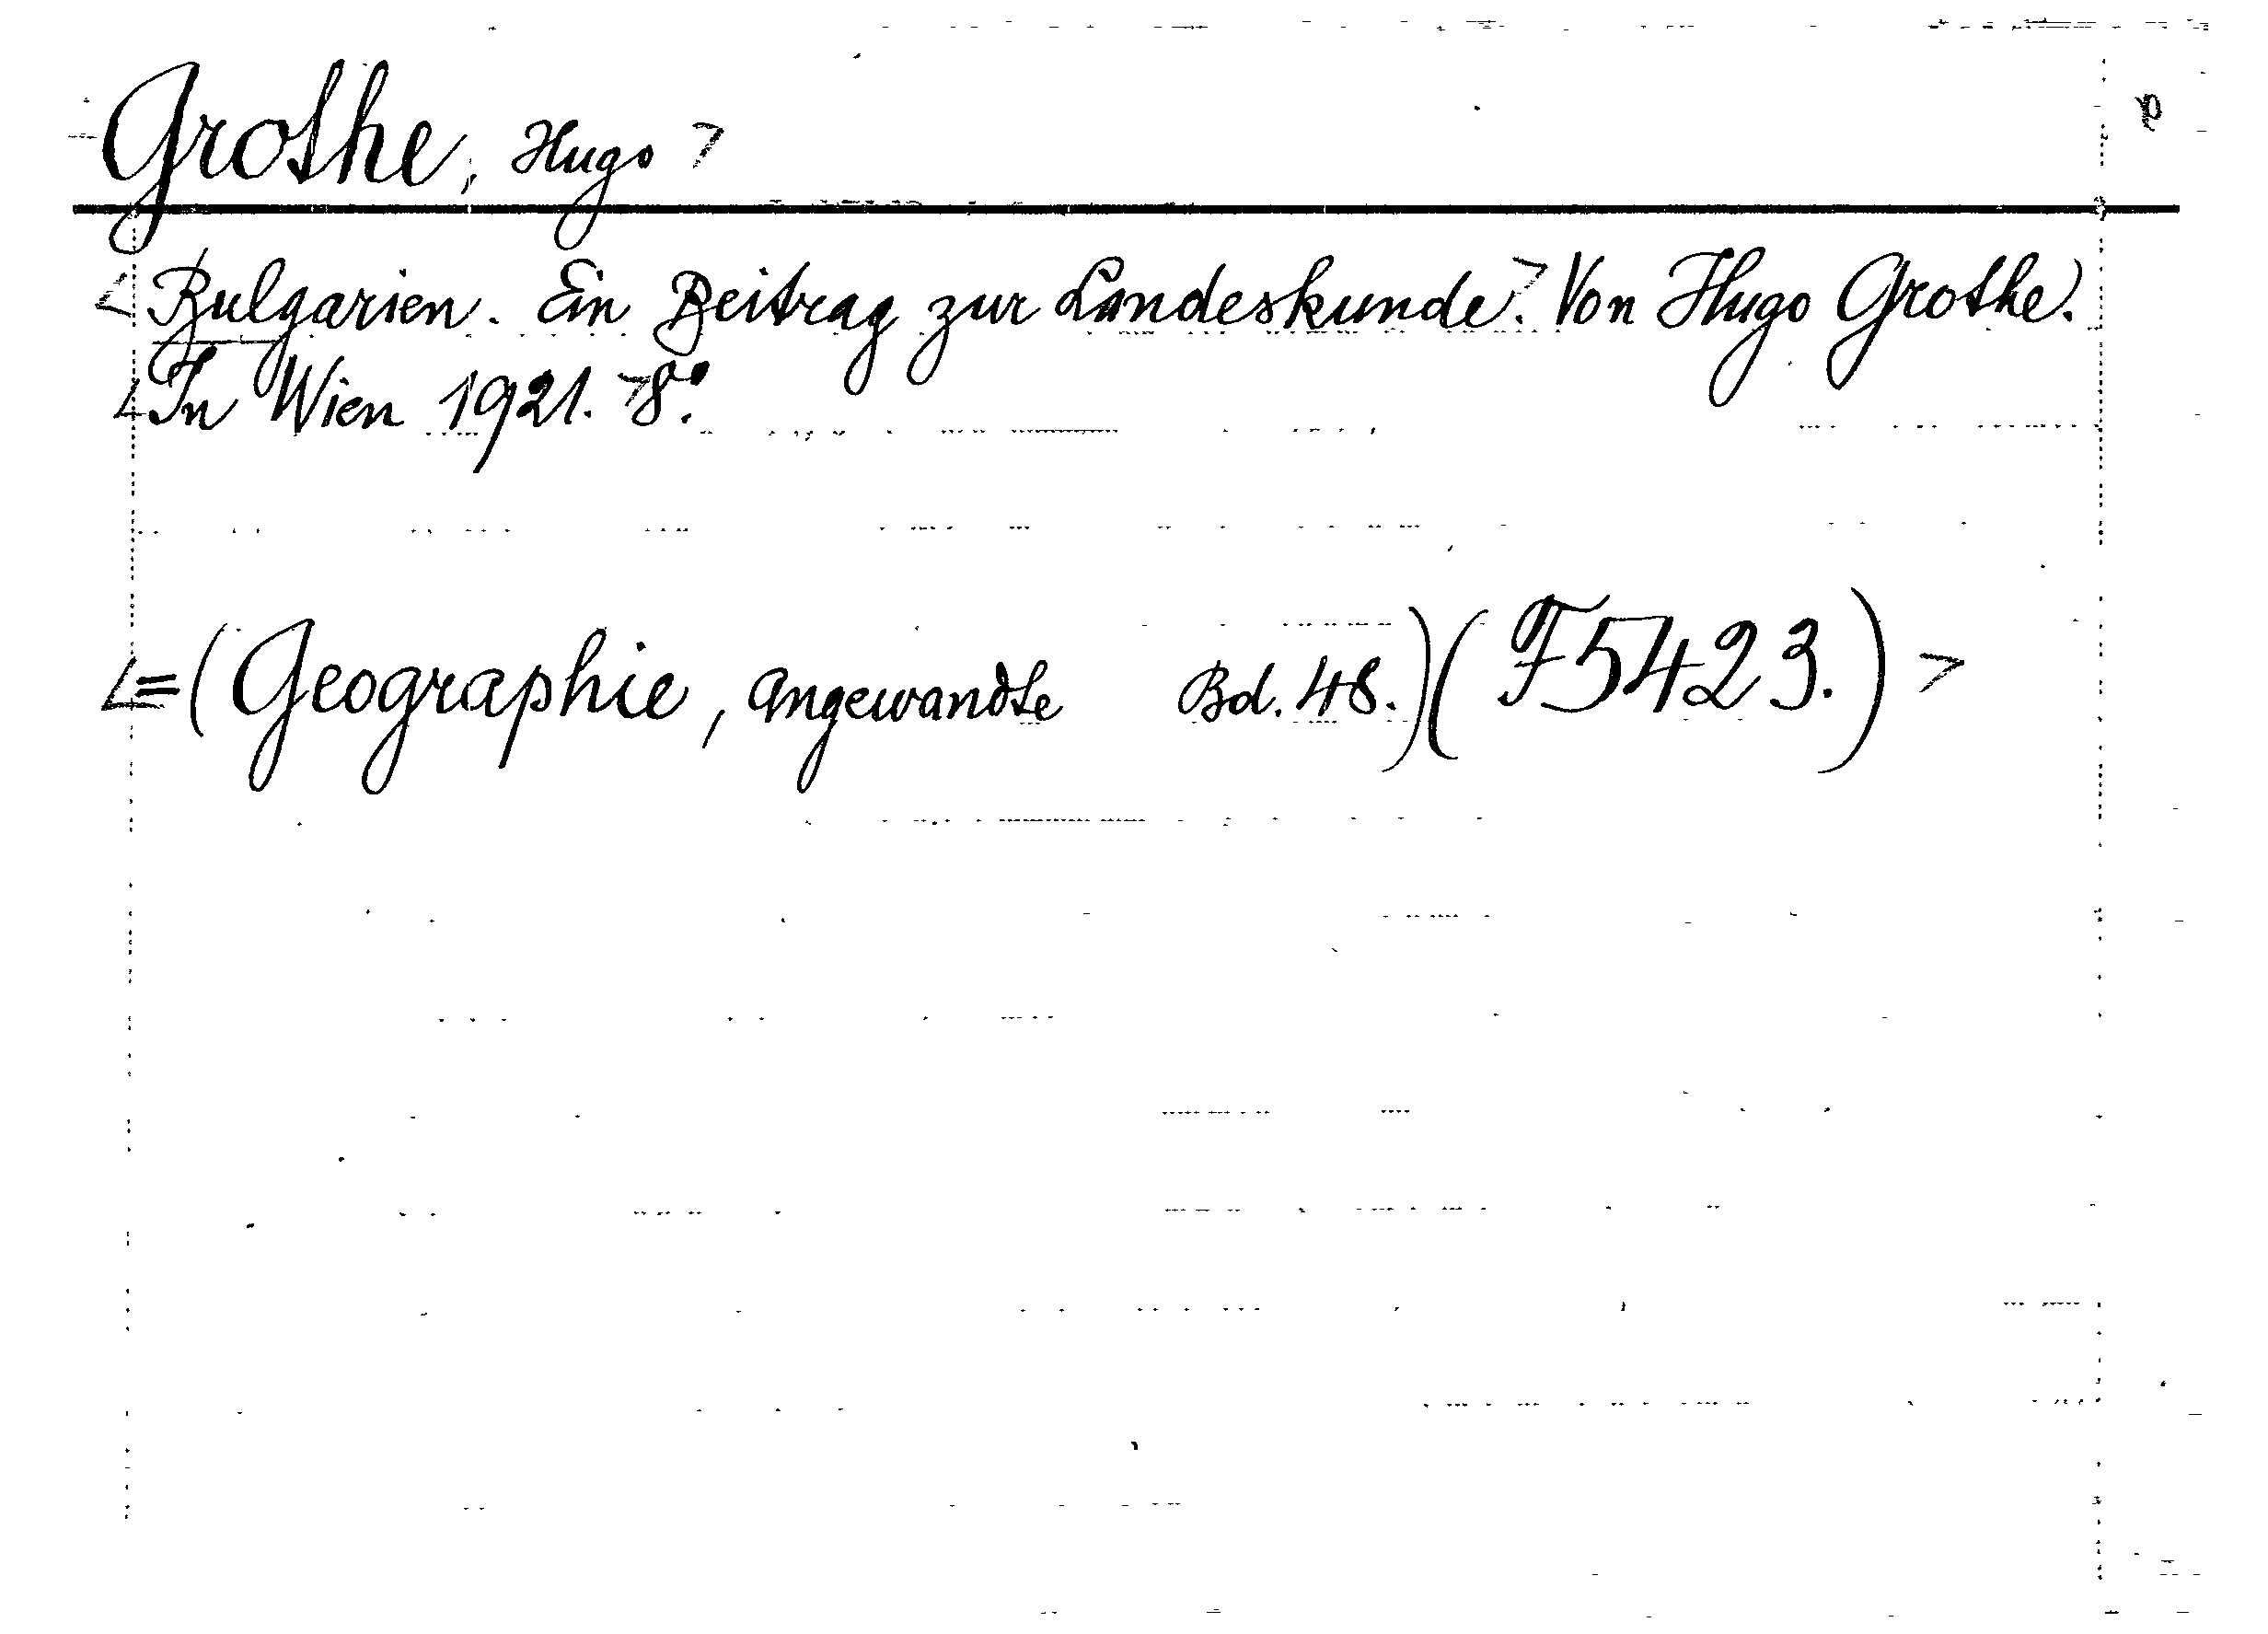 Grothe, Hugo >
< Bulgarien. Ein Beitrag zur Landeskunde. > Von Hugo Grothe.
< In Wien 1921. > 8º.
< = (Geographie, angewandte Bd. 48.) (F5423.) >